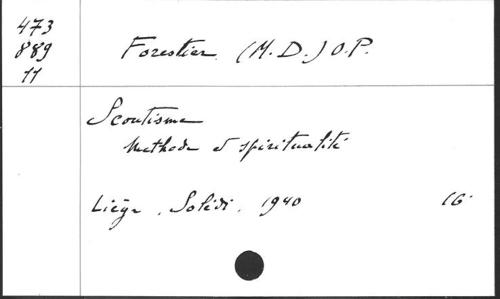 473
889
11
Forestier (M.D.) O.P.
Scoutisme
Methode et spiritualité
Liège, Solédi, 1940 16°